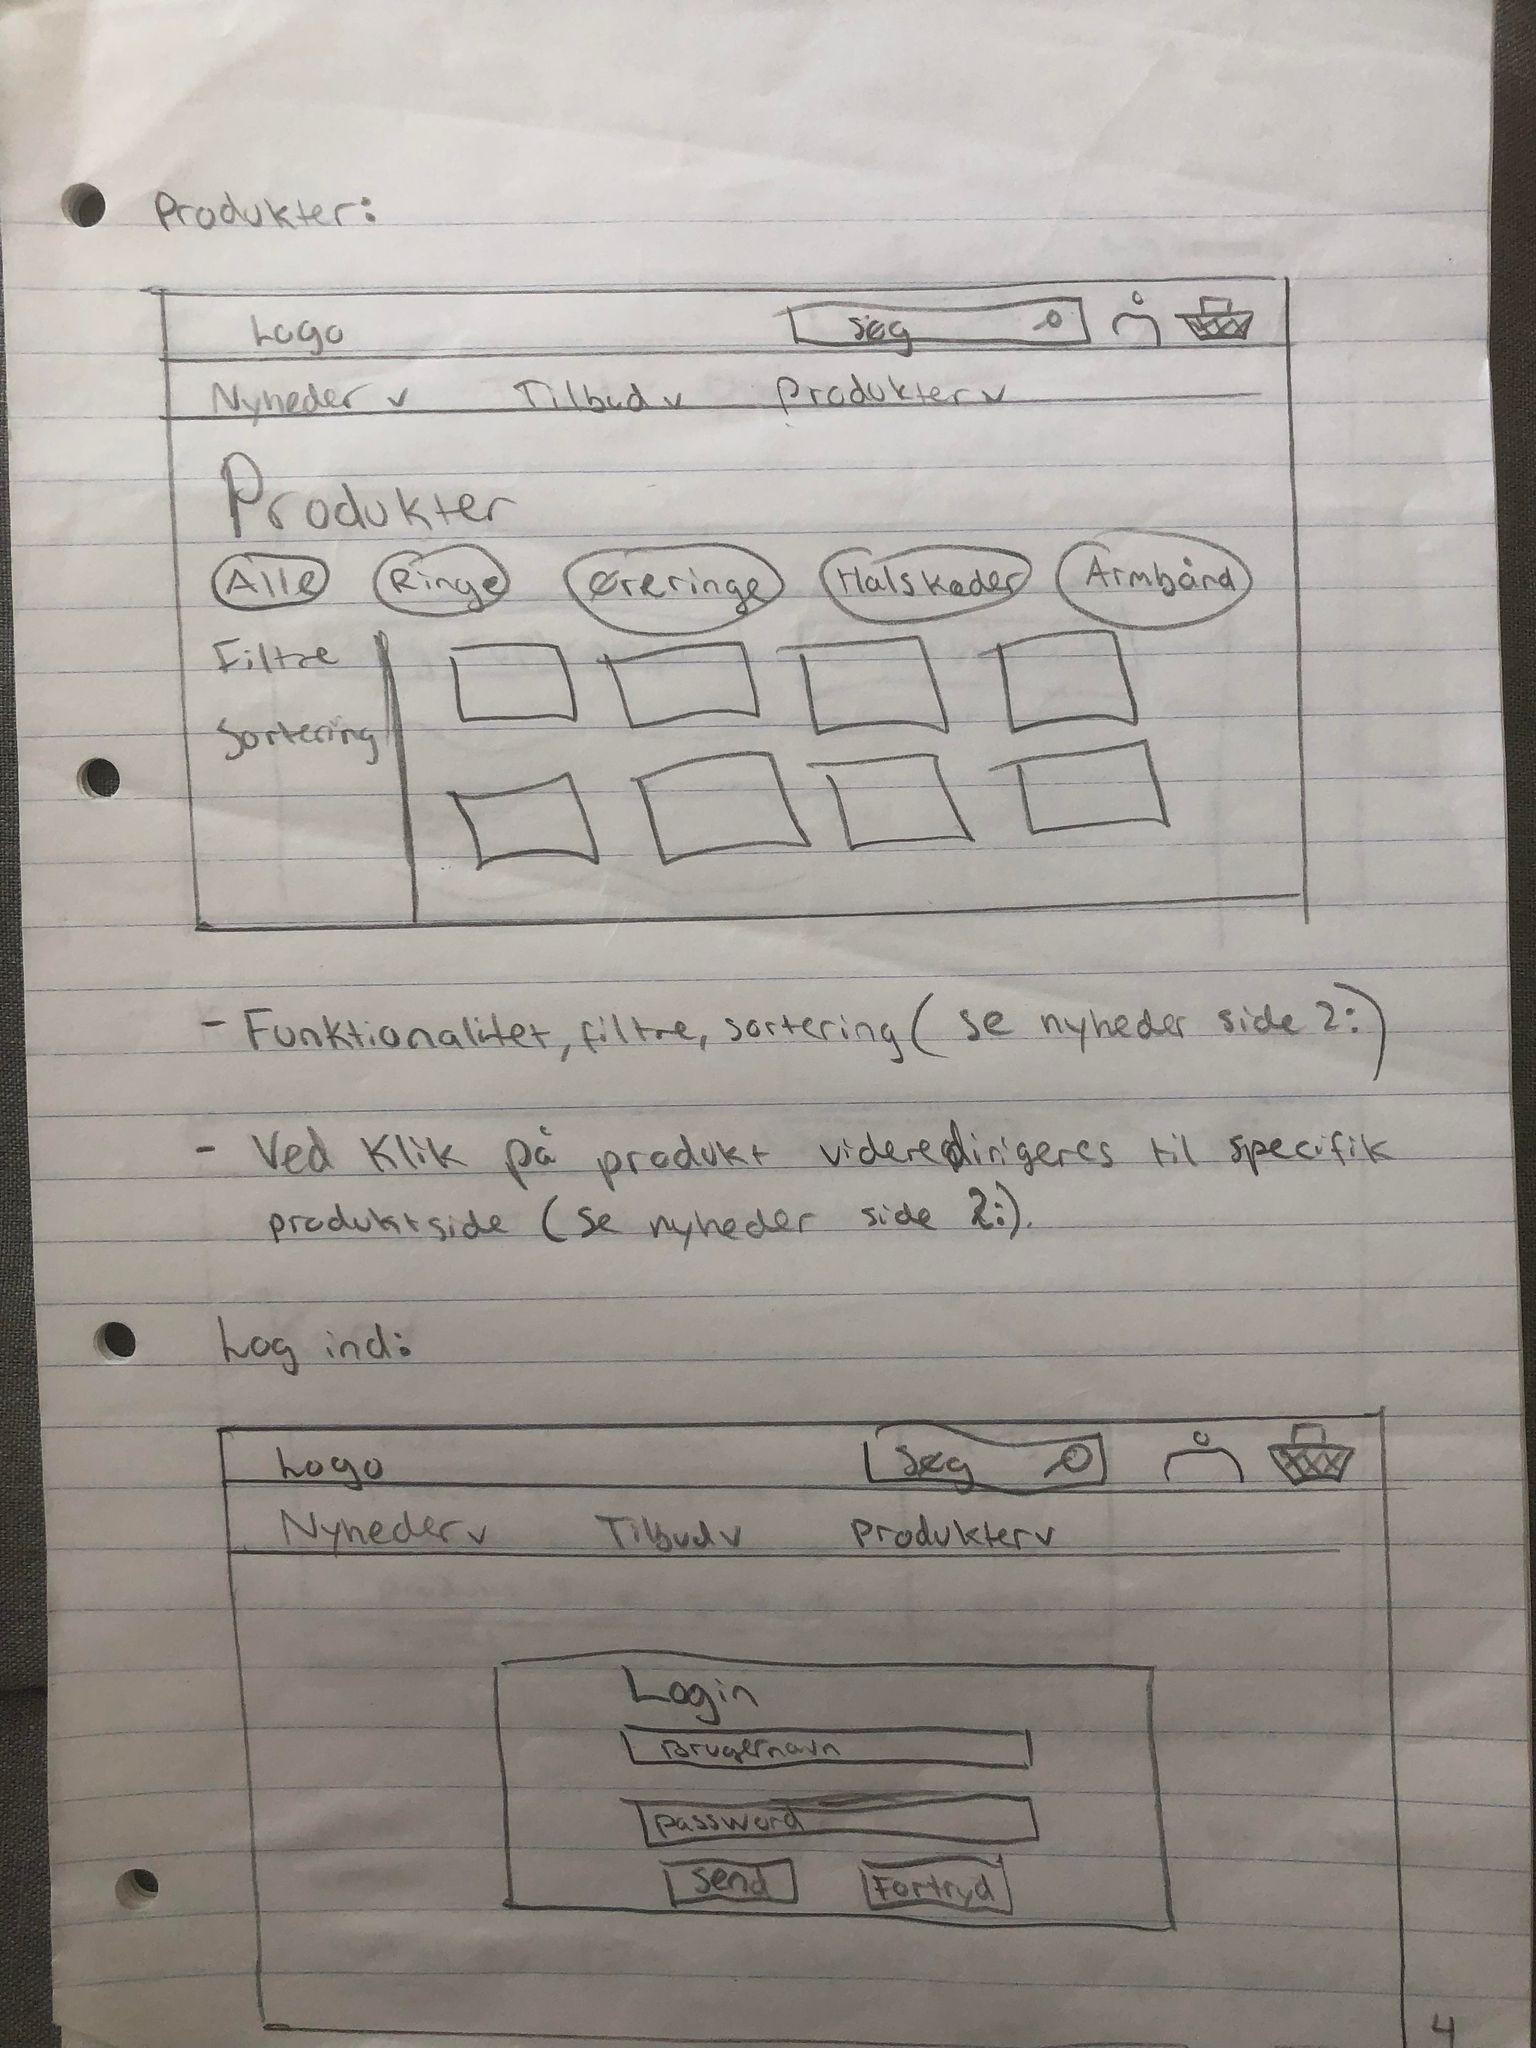 Produkter:
Logo Søg
Nyheder v Tilbud v Produkter v
Produkter
Alle Ringe Øreringe Halskæder Armbånd
Filtre
Sortering
- Funktionalitet, filtre, sortering ( se nyheder side 2:)
- Ved klik på produkt videredirigeres til specifik
produktside (se nyheder side 2:).
Log ind:
Logo Søg
Nyheder v Tilbud v Produkter v
Login
Brugernavn
password
Send Fortryd
4